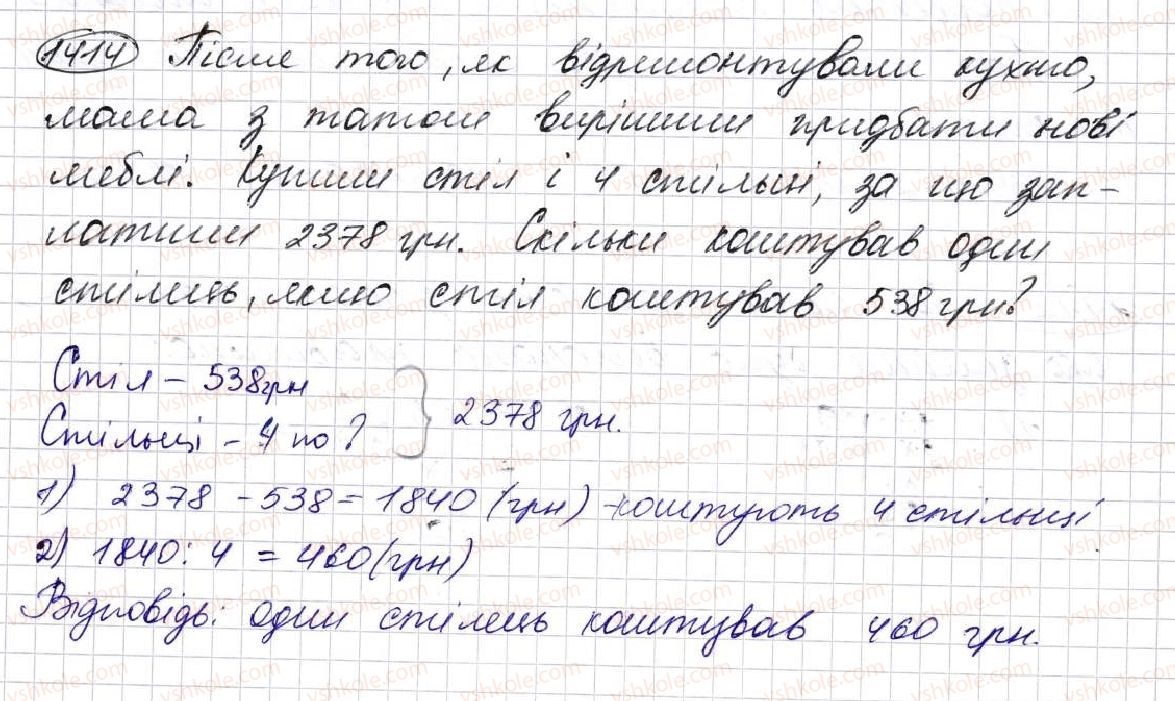 1414 Після того, як відремонтували кухню,
мама з татом вирішили придбати нові
меблі. Купили стіл і 4 стільці, за що зап-
латили 2378 грн. Скільки коштував один
стілець, якщо стіл коштував 538 грн?
Стіл – 538 грн
Стільці – 4 по ? } 2378 грн.
1) 2378 – 538 = 1840 (грн) – коштують 4 стільці
2) 1840 : 4 = 460 (грн)
Відповідь: один стілець коштував 460 грн.